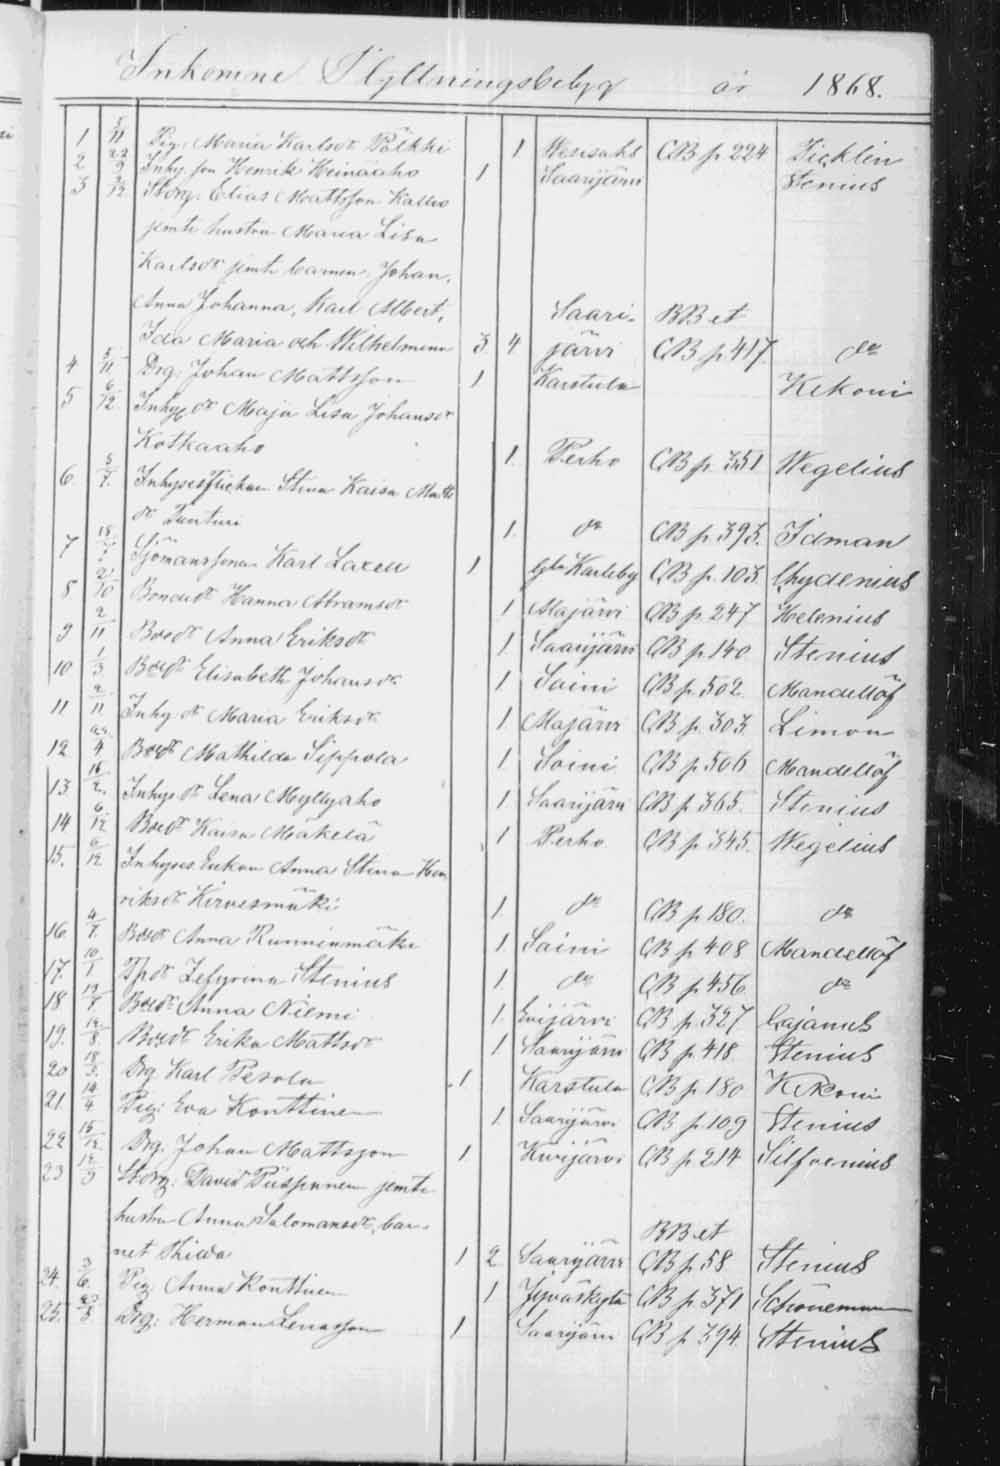 Inkomne Flyttningsbetyg år 1868.
1 5/11 Pig. Maria Karlsdr Pölkki 1 CB p 224
2 22/9 Inhy. son Henrik Heinäaho 1 Saarijärvi Stenius
3 3/12 Storp. Elias Mattsson Kallio
jemte hustru Maria Lisa
Karlsdr jemte barnen, Johan,
Anna Johanna, Karl Albert, Saari- BB et
Ida Maria och Wilhelmina 3 4 järvi CB p 417 do
4 5/11 Drg. Johan Mattsson 1 Karstula Kekoni
5 6/12 Inhy dr Maja Lisa Johansdr
Kotkaaho 1 Perho CB p. 351 Wegelius
6 5/7 Inhysesflickan Stina Kaisa Matts
dr Tunturi 1 do CB p. 393. Idman
7 Sjömanssonen Karl Laxell 1 Gla Karleby CB p. 103. Chydenius
8 Bondedr Hanna Abramsdr 1 Alajärvi CB p. 247 Helenius
9 2/11 Bondr Anna Eriksdr 1 Saarijärvi CB p. 140 Stenius
10 1/3 Bondr Elisabeth Johansdr 1 Soini CB p. 502. Mandellöf
11 2/11 Inhy dr Maria Eriksdr 1 Alajärvi CB p. 303 Limon
12 Bondr Mathilda Sippola 1 Soini CB p 506 Mandellöf
13 16/2 Inhys dr Lena Myllyaho 1 Saarijärvi CB p. 365. Stenius
14 6/12 Bondr Kaisa Mäkelä 1 Perho CB p. 345. Wegelius
15. 6/12 Inhyses Enkan Anna Stina Hen
riksdr Hirvesmäki 1 do CB p. 180. do
16 4/7 Bondr Anna Runninmäki 1 Soini CB p 408 Mandellöf
17. 10/1 Zefyrina Stenius 1. do CB p. 456 do
18 Bondr Anna Niemi 1 Evijärvi CB p. 327 Cajanus
19. Bondr Erika Mattsdr 1 Saarijärvi CB p. 418 Stenius
20 Drg. Karl Pesola 1 Karstula CB p 180 Kekoni
21. 14/4 Pig: Eva Konttinen 1. Saarijärvi CB p. 109 Stenius
22 15/12 Drg. Johan Mattsson 1 Kivijärvi CB p 214 Silfvenius
23 Storp. David Piispanen jemte
hustru Anna Salomansdr, bar- BB et
net 1 2 Saarijärvi CB p. 58. Stenius
24. 3/6 Pig Anna Konttinen 1 Jyväskylä CB p. 371 Schöneman
25. Drg: Herman Lenasson 1 Saarijärvi CB p. 394. Stenius